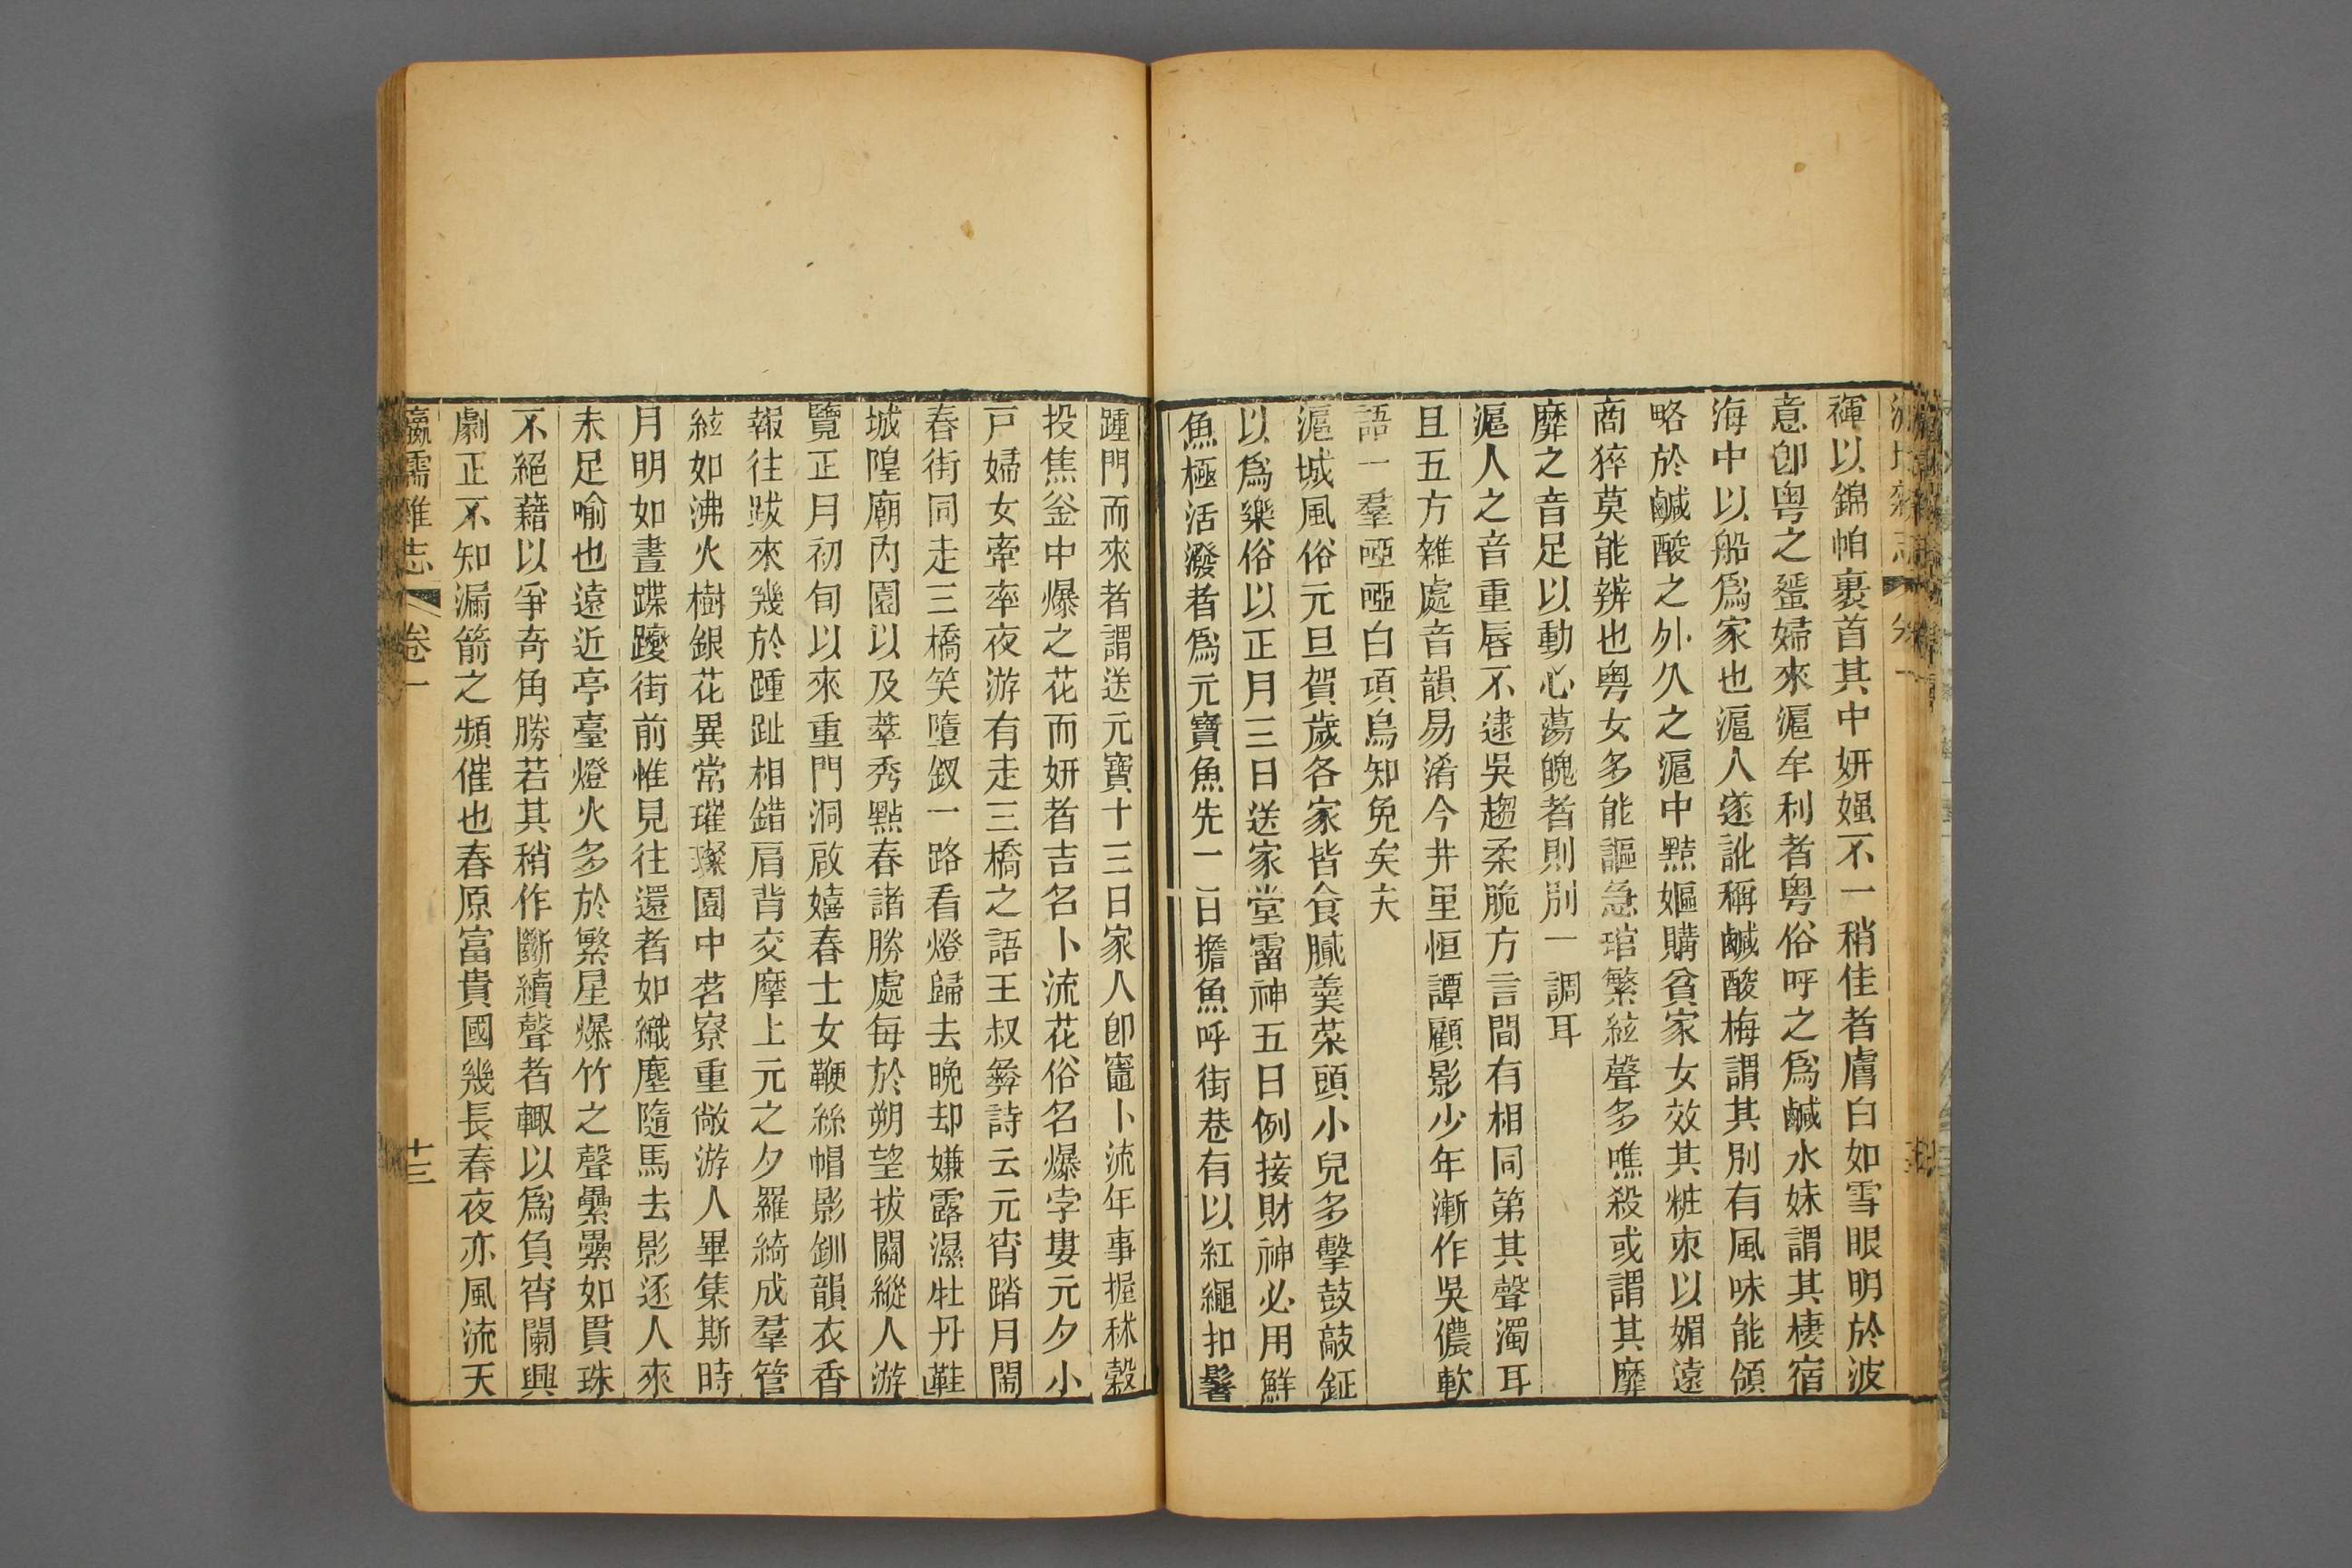 褌以錦帕裹首其中妍媸不一稍佳者膚白如雪眼明於波
意卽粤之蜑婦來滬牟利者粤俗呼之爲鹹水妹謂其棲宿
海中以船爲家也滬人遂訛稱鹹酸梅謂其別有風味能領
略於鹹酸之外久之滬中黠嫗購貧家女效其粧束以媚遠
商猝莫能辨也粤女多能謳急琯繁絃聲多噍殺或謂其靡
靡之音足以動心蕩魄者則別一調耳
滬人之音重唇不逮吳趨柔脆方言間有相同第其聲濁耳
且五方雜處音韻易淆今井里恒譚顧影少年漸作吳儂軟
語一羣啞啞白項烏知免矣夫
滬城風俗元旦賀歲各家皆食膩羹菜頭小兒多擊鼓敲鉦
以爲樂俗以正月三日送家堂霤神五日例接財神必用鮮
魚極活潑者爲元寶魚先一日擔魚呼街巷有以紅繩扣鬐
踵門而來者謂送元寶十三日家人卽竈卜流年事握秫穀
投焦釜中爆之花而妍者吉名卜流花俗名爆孛婁元夕小
戸婦女牽率夜游有走三橋之語王叔彝詩云元宵踏月鬧
春街同走三橋笑墮釵一路看燈歸去晩却嫌露濕牡丹鞋
城隍廟內園以及萃秀㸃春諸勝處每於朔望拔關縱人游
覽正月初旬以來重門洞啟嬉春士女鞭絲帽影釧韻衣香
報往跋來幾於踵趾相錯肩背交摩上元之夕羅綺成羣管
絃如沸火樹銀花異常璀璨園中茗寮重敞游人畢集斯時
月明如晝蹀躞街前惟見往還者如織塵隨馬去影逐人來
未足喻也遠近亭臺燈火多於繁星爆竹之聲纍纍如貫珠
不絕藉以爭奇角勝若其稍作斷續聲者輙以爲負宵闌興
劇正不知漏箭之頻催也春原富貴國幾長春夜亦風流天
瀛壖雜志 卷一 十三